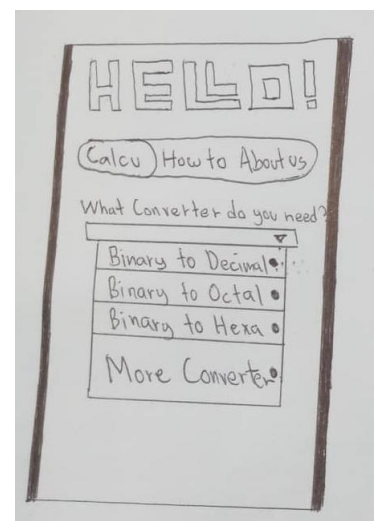 HELLO!
Calcu How to About us
What Converter do you need?
Binary to Decimal
Binary to Octal
Binary to Hexa
More Converter